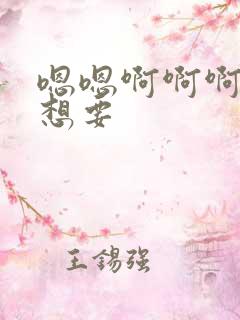 嗯嗯啊啊啊
想要
王锡强